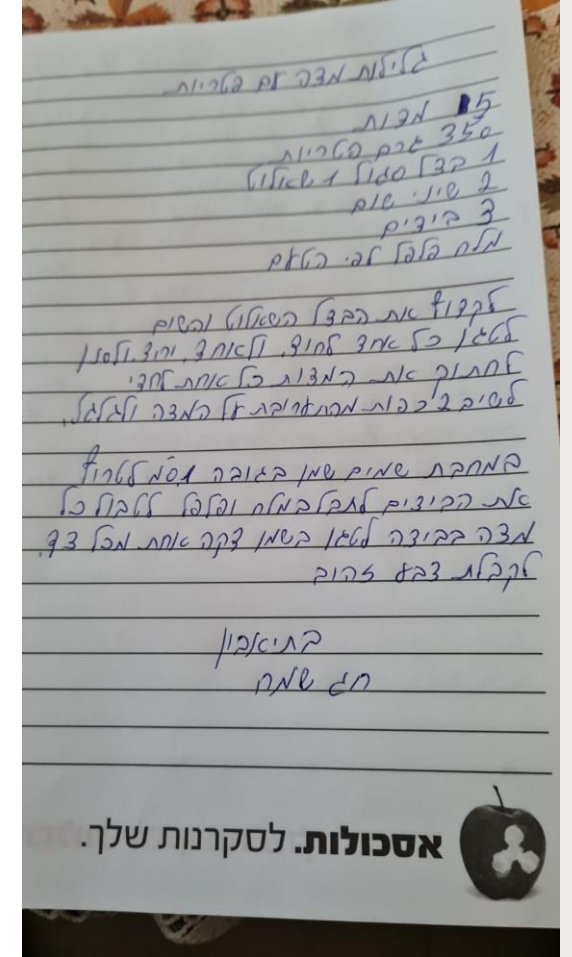 גלילות מצה עם פטריות
5 מצות
350 גרם פטריות
1 בצל סגול 1 שאלוט
2 שיני שום
3 ביצים
מלח פלפל לפי הטעם
לקצוץ את הבצל השאלוט והשום
לטגן כל אחד לחוד, ולאחד יחד ולסנן
לחתוך את המצות כל אחת לחצי
לשים 2 כפות מהתערובת על המצה ולגלגל.
במחבת שמים שמן בגובה 1 ס"מ לטרוף
את הביצים לתבל במלח ופלפל לטבול כל
מצה בביצה לטגן בשמן דקה אחת מכל צד,
לקבלת צבע זהוב
בתיאבון
חג שמח
אסכולות. לסקרנות שלך.